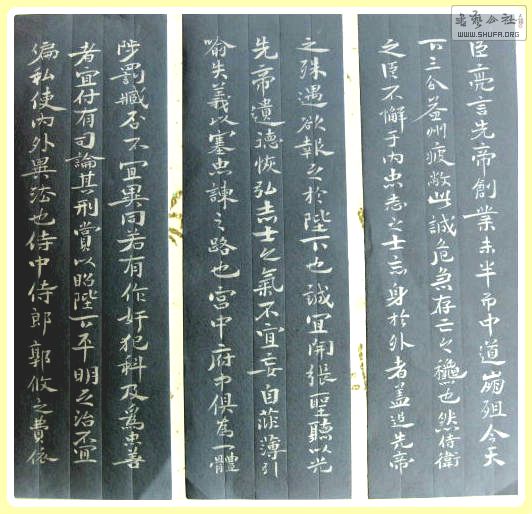 臣亮言先帝創業未半而中道崩殂今天
下三分益州疲敝此誠危急存亡之秋也然侍衛
之臣不懈于內忠志之士忘身於外者蓋追先帝
之殊遇欲報之於陛下也誠宜開張聖聽以光
先帝遺德恢弘志士之氣不宜妄自菲薄引
喻失義以塞忠諫之路也宮中府中俱為一體
陟罰臧否不宜異同若有作奸犯科及為忠善
者宜付有司論其刑賞以昭陛下平明之治不宜
偏私使內外異法也侍中侍郎郭攸之費依
书艺公社
WWW.SHUFA.ORG